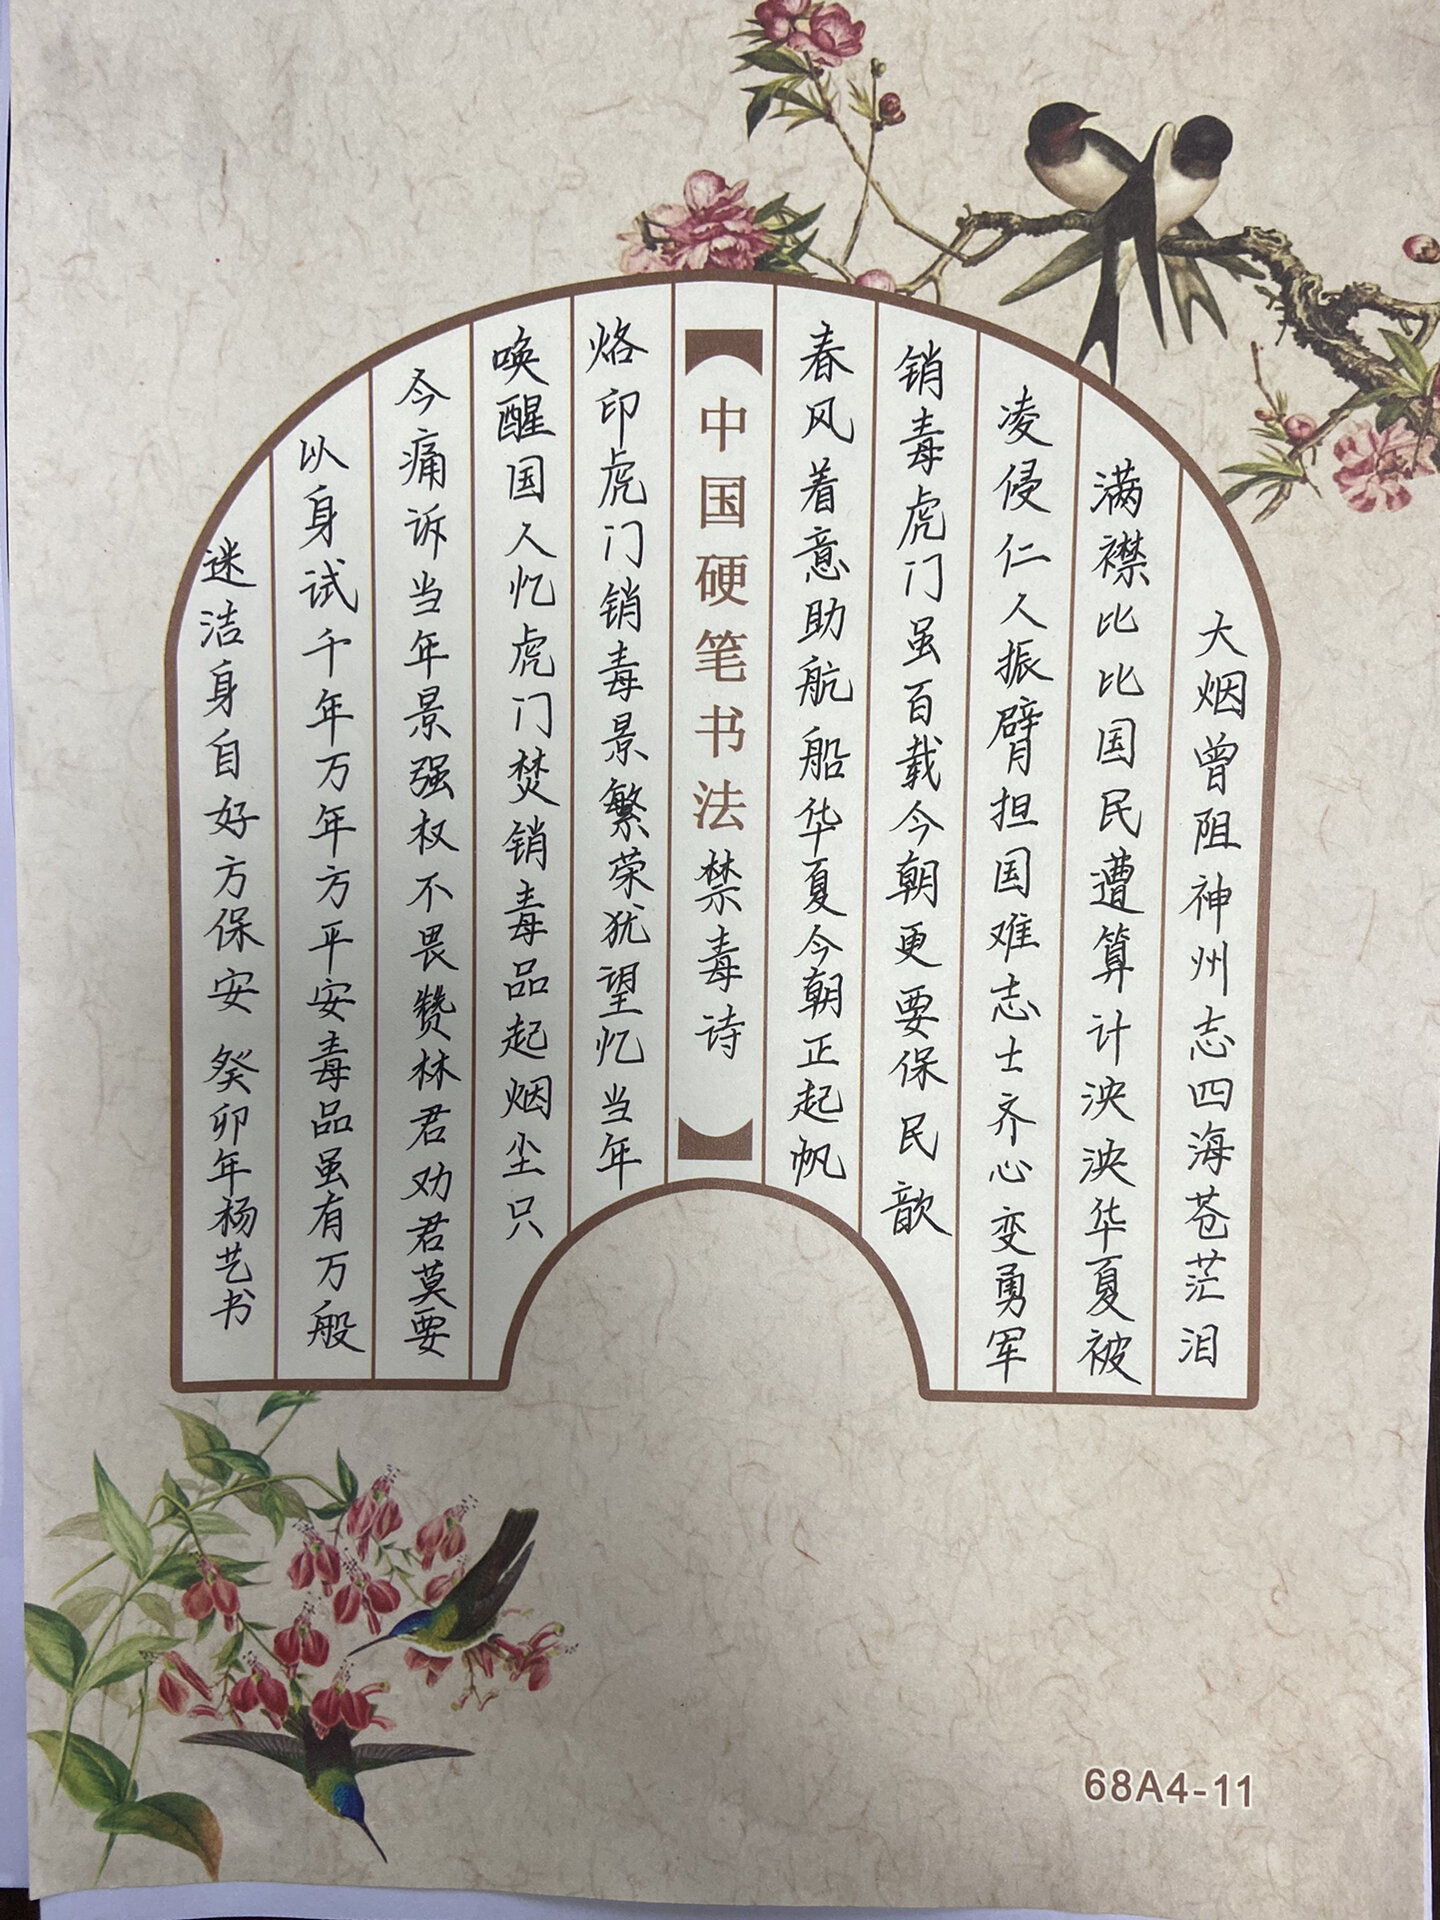 大烟曾阻神州志四海苍茫泪
满襟比比国民遭算计泱泱华夏被
凌侵仁人振臂担国难志士齐心变勇军
销毒虎门虽百载今朝更要保民歆
春风着意助航船华夏今朝正起帆
中国硬笔书法禁毒诗
烙印虎门销毒景繁荣犹望忆当年
唤醒国人忆虎门焚销毒品起烟尘只
今痛诉当年景强权不畏赞林君劝君莫要
以身试千年万年方平安毒品虽有万般
迷洁身自好方保安 癸卯年杨艺书
68A4-11